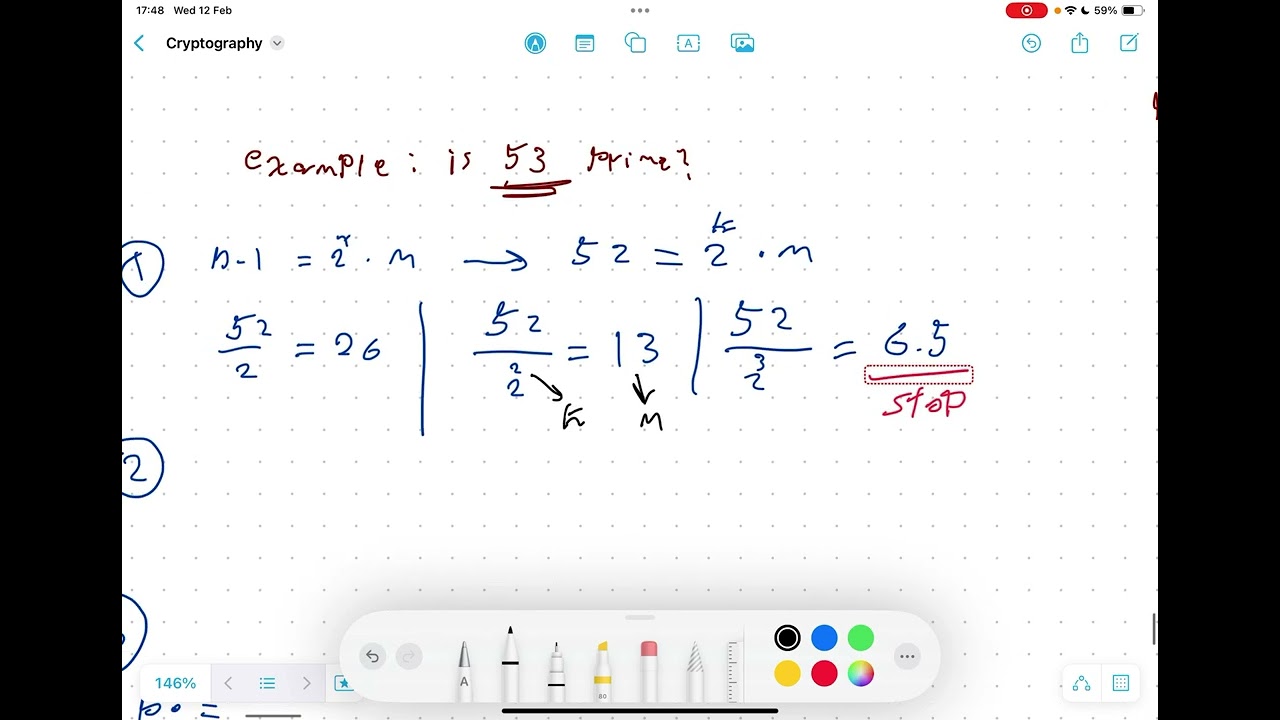 17:48 Wed 12 Feb
59%
Cryptography
example: is 53 prime?
1 n-1 = 2^k · m → 52 = 2^k · m
52/2 = 26 | 52/2^2 = 13 | 52/2^3 = 6.5
k m stop
2
A
A 80
146%
b0 =